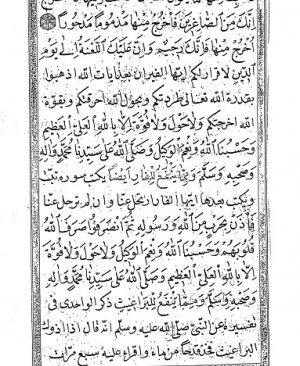 انك من الصاغرين فاخرج منها مذموما مدحورا
اخرج منها فانك رجيم وان عليك اللعنة الى يوم
الدين لا قرار لكم ايتها الفيران بعذابات الله اذهبوا
بقدرة الله تعالى طردتكم وبحول الله احرقتكم وبقوة
الله اخرجتكم ولا حول ولا قوة الا بالله العلي العظيم
وحسبنا الله ونعم الوكيل وصلى الله على سيدنا محمد واله
وصحبه وسلم ومما ينفع للفار ايضا يكتب سورة تبت
يكتب بعدها ايتها الفار ارتحل عنا وان لم ترحل عنا
فأذن بحرب من الله ورسوله ثم انصرفوا صرف الله
قلوبهم وحسبنا الله ونعم الوكيل ولا حول ولا قوة
الا بالله العلي العظيم وصلى الله على سيدنا محمد واله
وصحبه وسلم ومما ينفع للبراغيث ذكر الواحدى فى
تفسيره عن النبي صلى الله عليه وسلم انه قال اذا اذوك
البراغيث فخذ قدحا من ماء واقراء عليه سبع مرات